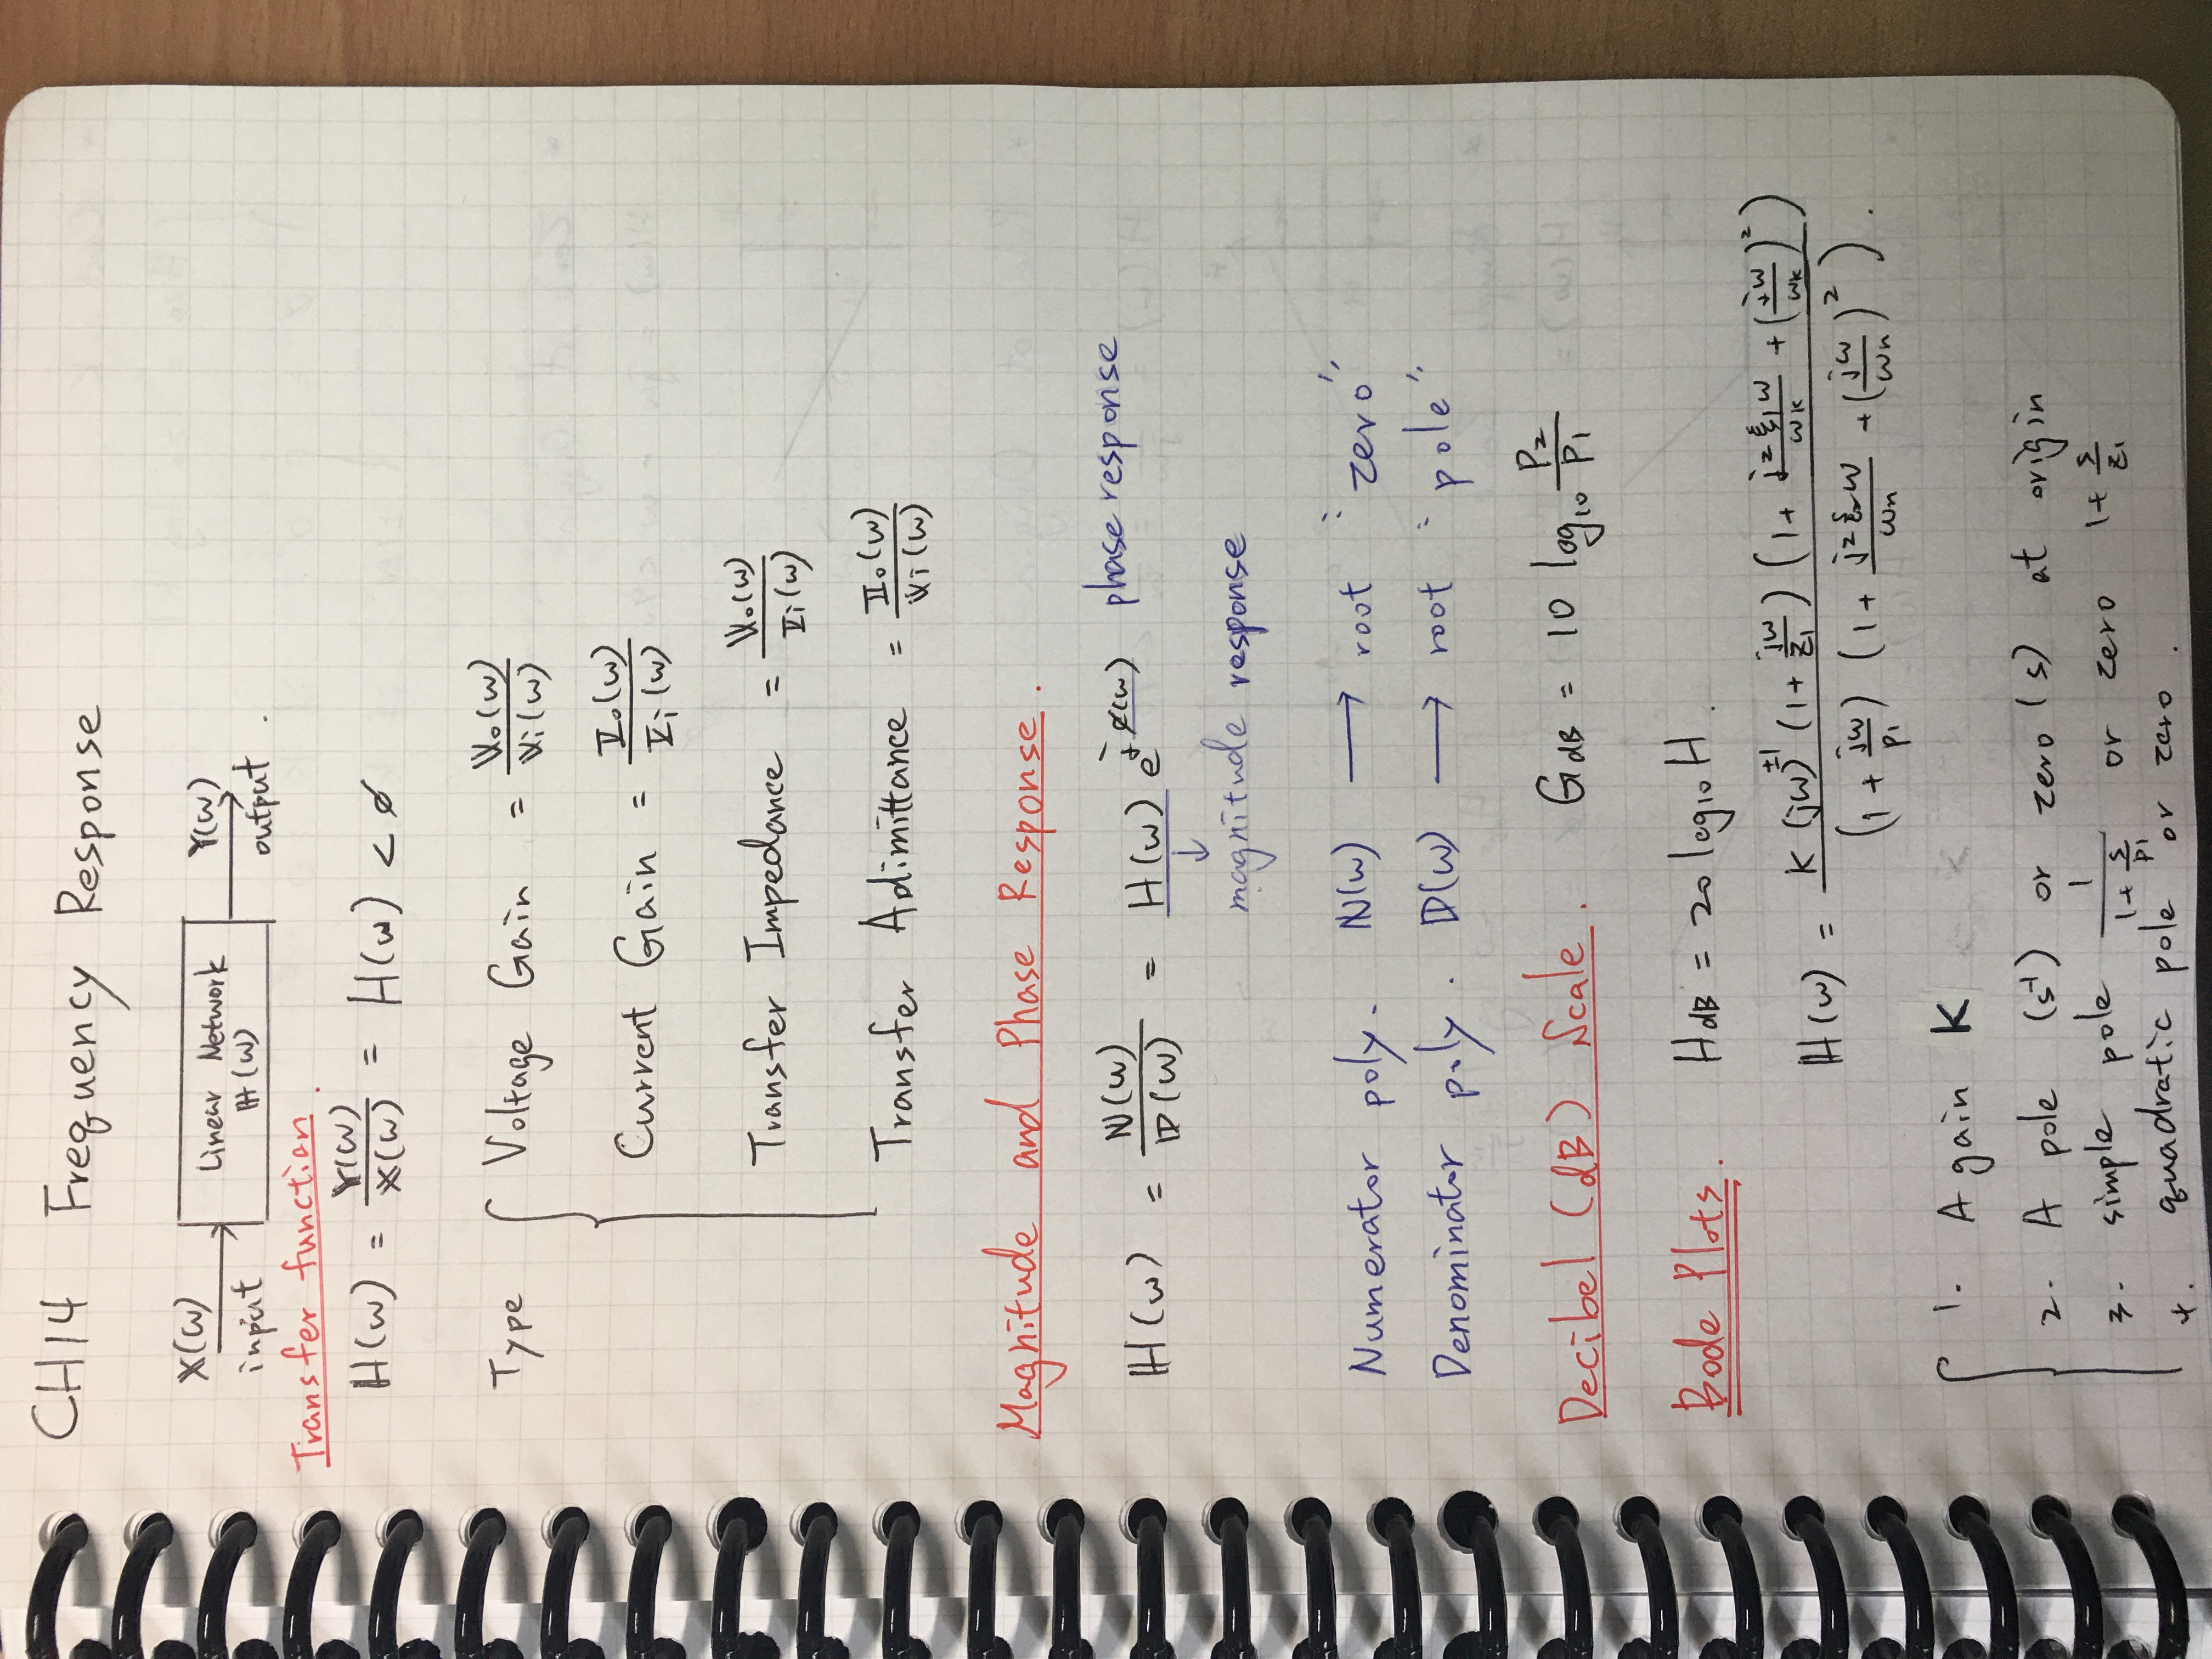 CH14 Frequency Response
X(ω) Linear Network Y(ω)
input H(ω) output .
Transfer function .
H(ω) = Y(ω)/X(ω) = H(ω) < ϕ
Type { Voltage Gain = Vo(ω)/Vi(ω)
Current Gain = Io(ω)/Ii(ω)
Transfer Impedance = Vo(ω)/Ii(ω)
Transfer Adimittance = Io(ω)/Vi(ω)
Magnitude and Phase Response .
H(ω) = N(ω)/D(ω) = H(ω) e^jϕ(ω) phase response
↓
magnitude response
Numerator poly. N(ω) → root "zero"
Denominator poly. D(ω) → root "pole"
Decibel (dB) Scale . GdB = 10 log10 P2/P1
Bode Plots . HdB = 20 log10 H .
H(ω) = K (jω)^±1 (1 + jω/z1) (1 + j2ξ1ω/ωk + (jω/ωk)^2) / (1 + jω/p1) (1 + j2ξ2ω/ωn + (jω/ωn)^2) .
1. A gain K
2. A pole (s^-1) or zero (s) at origin
3. simple pole 1/(1 + s/p1) or zero 1 + s/z1
4. quadratic pole or zero .